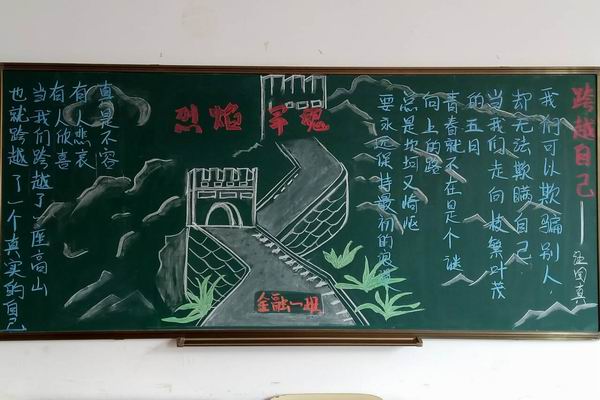 跨越自己——汪国真
我们可以欺骗别人
却无法欺瞒自己
当我们走向枝繁叶茂
的五月
青春就不在是个谜
向上的路
总是坎坷又崎岖
要永远保持最初的
烈焰 军魂
金融一班
真是不容
有人悲哀
有人欣喜
当我们跨越了一座高山
也就跨越了一个真实的自己